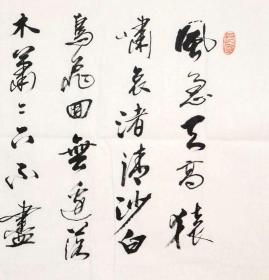 風急天高猿
嘯哀渚清沙白
鳥飛回無邊落
木蕭〻下不盡